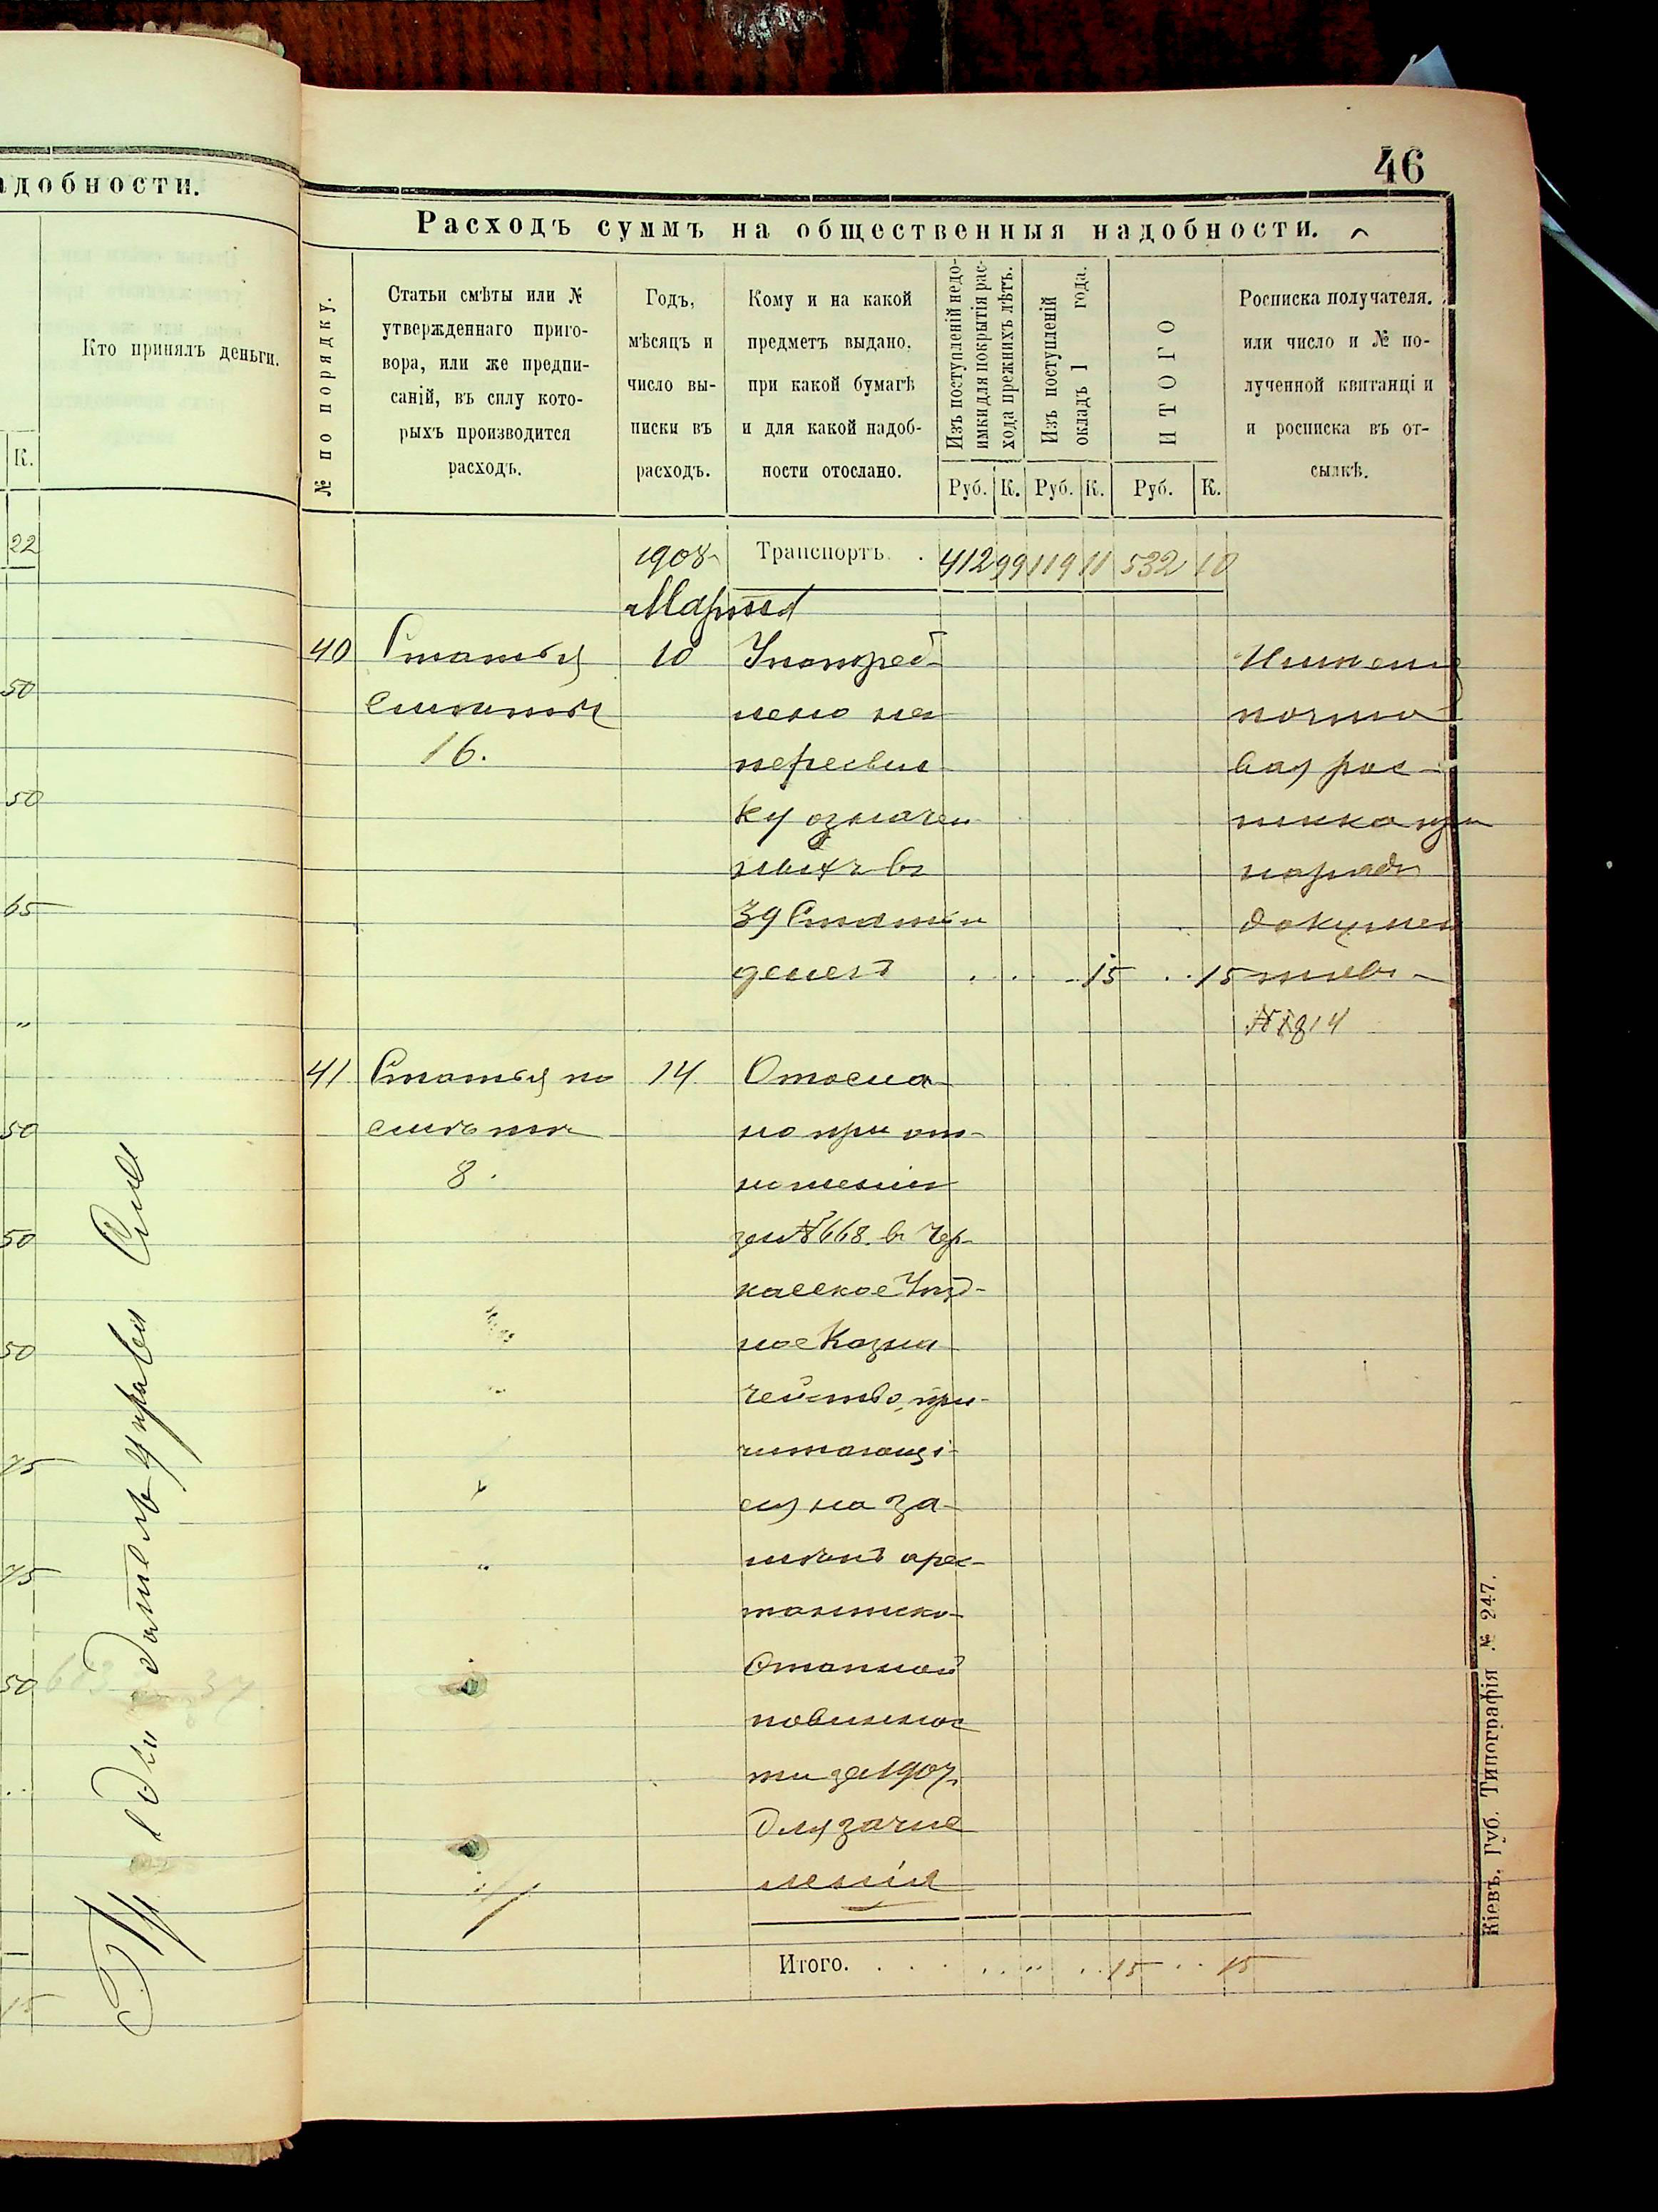 адобности.
Кто принялъ деньги.
К.
22
50
50
65
"
50
50
50
75
75
50
15
46
Расходъ суммъ на общественныя надобности.
№ по порядку.
Статьи смѣты или №
утвержденнаго приго-
вора, или же предпи-
саній, въ силу кото-
рыхъ производится
расходъ.
Годъ,
мѣсяцъ и
число вы-
писки въ
расходъ.
Кому и на какой
предметъ выдано.
при какой бумагѣ
и для какой надоб-
ности отослано.
Изъ поступленій недо-
имки для покрытія рас-
хода прежнихъ лѣтъ.
Изъ поступленій
окладъ 1 года.
ИТОГО
Росписка получателя.
или число и № по-
лученной квитанці и
и росписка въ от-
сылкѣ.
Руб. К. Руб. К. Руб. К.
1908 Транспортъ. 412 99 119 11 532 10
Марта
40 Статья 10 Употреб-
смѣты лено на
16. пересыл
ку означен
ныхъ въ
39 Статьи
денегъ 15 15
Имъется
почто
вая рос-
писка при
наряде
документовъ
№ 1814
41 Статья по 14 Отосла-
смѣтѣ но при от-
8. ношеніи
за № 668. въ Чер-
касское Уѣзд-
ное Казна-
чейство, при-
читающі-
еся на за-
мѣнъ арес-
тантско-
Этапной
повиннос
ти за 1907
для зачис
ленія
Итого. " 15 15
Кіевъ. Губ. Типографія № 247.